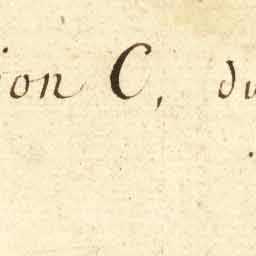 ion C, du